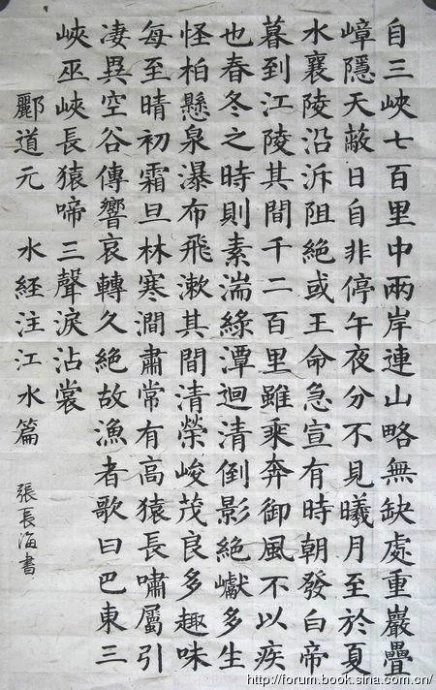 自三峽七百里中兩岸連山略無缺處重巖疊
嶂隱天蔽日自非停午夜分不見曦月至於夏
水襄陵沿泝阻絕或王命急宣有時朝發白帝
暮到江陵其間千二百里雖乘奔御風不以疾
也春冬之時則素湍綠潭迴清倒影絕巘多生
怪柏懸泉瀑布飛漱其間清榮峻茂良多趣味
每至晴初霜旦林寒澗肅常有高猿長嘯屬引
凄異空谷傳響哀轉久絕故漁者歌曰巴東三
峽巫峽長猿啼三聲淚沾裳
酈道元 水経注江水篇 張長海書
http://forum.book.sina.com.cn/